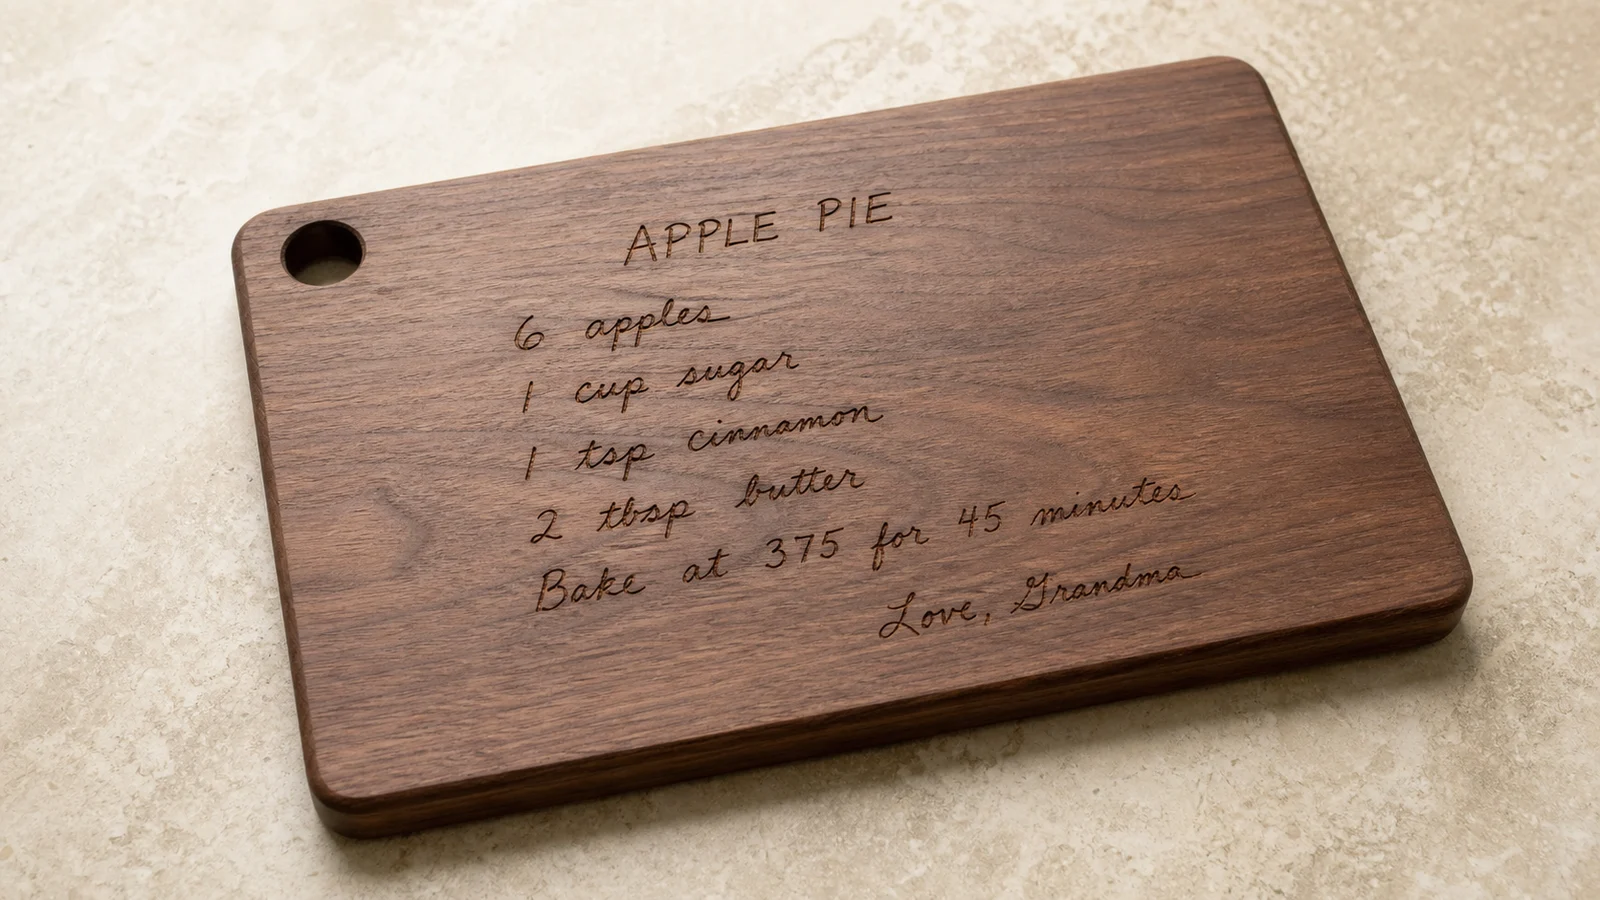 APPLE PIE
6 apples
1 cup sugar
1 tsp cinnamon
2 tbsp butter
Bake at 375 for 45 minutes
Love, Grandma